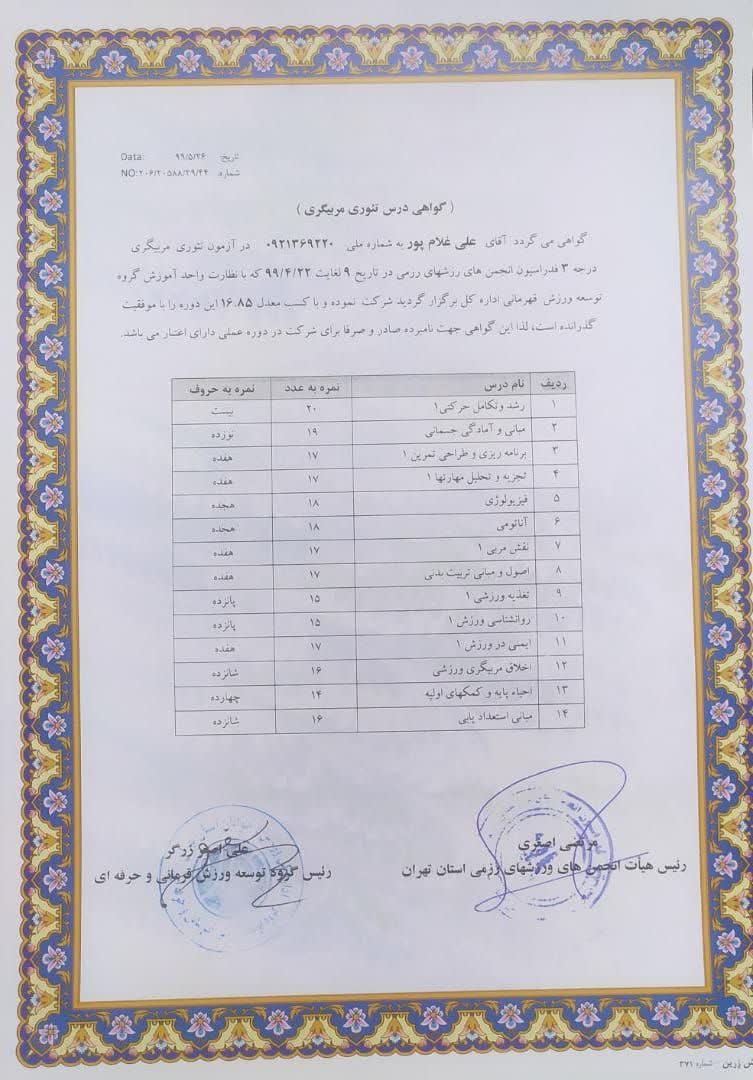 تاریخ: ۹۹/۵/۲۶ Data:
شماره: ۲۰۶/۲۰۵۸۸/۲۹/۴۴ NO:
( گواهی درس تئوری مربیگری )
گواهی می گردد آقای علی غلام پور به شماره ملی ۰۹۲۱۳۶۹۲۲۰ در آزمون تئوری مربیگری
درجه ۳ فدراسیون انجمن های رزشهای رزمی در تاریخ ۹ لغایت ۹۹/۴/۲۲ که با نظارت واحد آموزش گروه
توسعه ورزش قهرمانی اداره کل برگزار گردید شرکت نموده و با کسب معدل ۱۶.۸۵ این دوره را با موفقیت
گذرانده است، لذا این گواهی جهت نامبرده صادر و صرفا برای شرکت در دوره عملی دارای اعتبار می باشد.
ردیف نام درس نمره به عدد نمره به حروف
۱ رشد وتکامل حرکتی۱ ۲۰ بیست
۲ مبانی و آمادگی جسمانی ۱۹ نوزده
۳ برنامه ریزی و طراحی تمرین ۱ ۱۷ هفده
۴ تجزیه و تحلیل مهارتها ۱ ۱۷ هفده
۵ فیزیولوژی ۱۸ هجده
۶ آناتومی ۱۸ هجده
۷ نقش مربی ۱ ۱۷ هفده
۸ اصول و مبانی تربیت بدنی ۱۷ هفده
۹ تغذیه ورزشی ۱ ۱۵ پانزده
۱۰ روانشناسی ورزش ۱ ۱۵ پانزده
۱۱ ایمنی در ورزش ۱ ۱۷ هفده
۱۲ اخلاق مربیگری ورزشی ۱۶ شانزده
۱۳ احیاء پایه و کمکهای اولیه ۱۴ چهارده
۱۴ مبانی استعداد یابی ۱۶ شانزده
مرتضی اصغری
رئیس هیأت انجمن های ورزشهای رزمی استان تهران
علی اصغر زرگر
رئیس گروه توسعه ورزش قرمانی و حرفه ای
زرین - شماره ۳۷۱